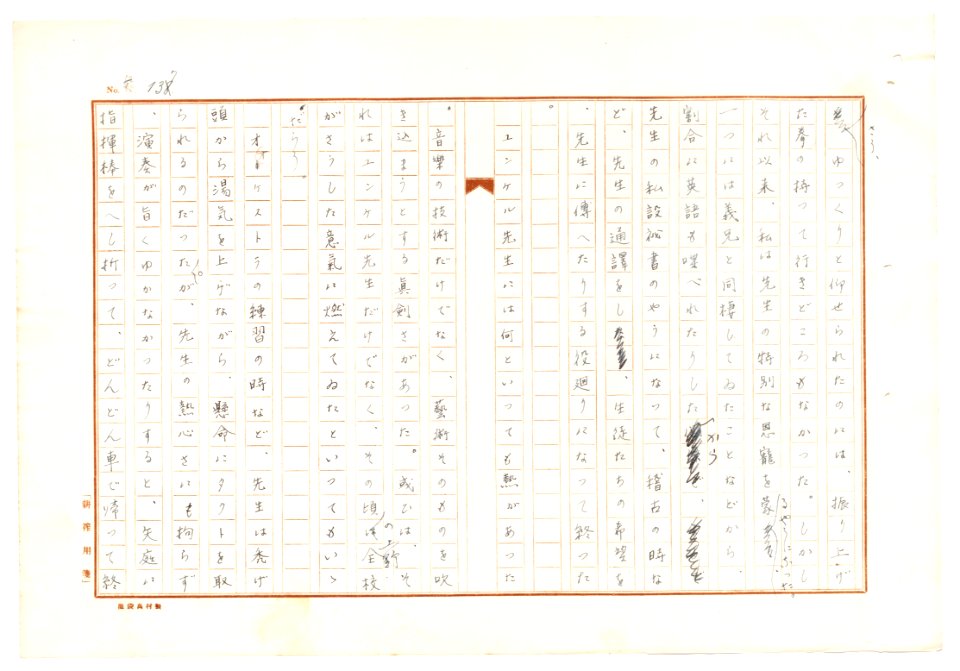 No. 138
さう、ゆつくりと仰せられたのには、振り上げ
た拳の持つて行きどころがなかつた。しかし
それ以来、私は先生の特別な恩寵を蒙るやうになつた。
一つには義兄と同棲してゐたことなどから、
割合に英語が喋べれたりしたから、
先生の私設秘書のやうになつて、稽古の時な
ど、先生の通譯をし、生徒たちの希望を
先生に傳へたりする役廻りになつて終つた
。
ユンケル先生には何といつても熱があつた
。音樂の技術だけでなく、藝術そのものを吹
き込まうとする眞劍さがあつた。或ひは、そ
れはユンケル先生だけでなく、その頃の上野は全校
がさうした意氣に燃えてゐたといつてもいゝ
だらう。
オーケストラの練習の時など、先生は禿げ
頭から湯気を上げながら、懸命にタクトを取
られるのだつた。が、先生の熱心さにも拘らず
、演奏が旨くゆかなかつたりすると、矢庭に
指揮棒をへし折つて、どんどん車で帰つて終